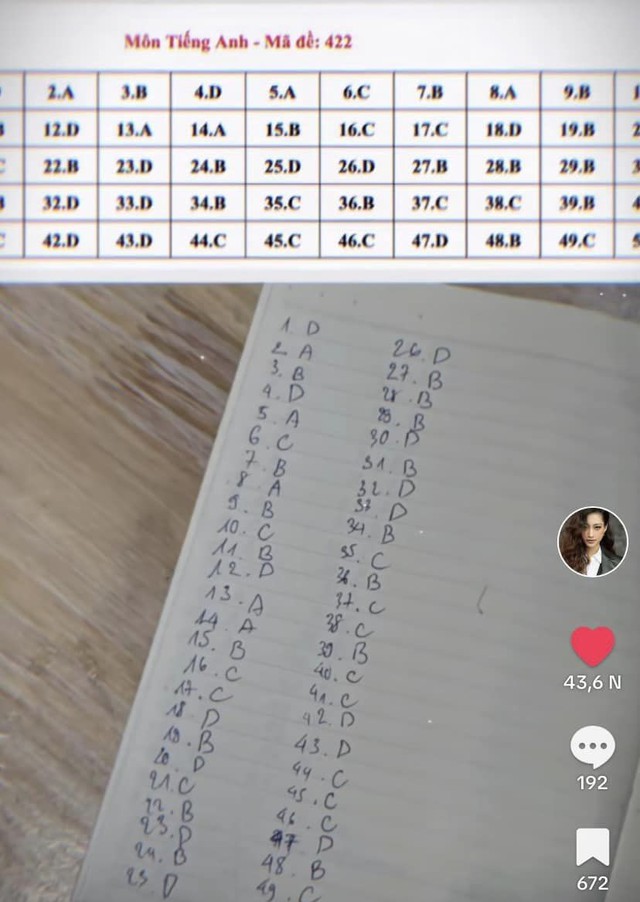 Môn Tiếng Anh - Mã đề: 422
2.A 3.B 4.D 5.A 6.C 7.B 8.A 9.B
12.D 13.A 14.A 15.B 16.C 17.C 18.D 19.B
22.B 23.D 24.B 25.D 26.D 27.B 28.B 29.B
32.D 33.D 34.B 35.C 36.B 37.C 38.C 39.B
42.D 43.D 44.C 45.C 46.C 47.D 48.B 49.C
1. D
2. A
3. B
4. D
5. A
6. C
7. B
8. A
9. B
10. C
11. B
12. D
13. A
14. A
15. B
16. C
17. C
18. D
19. B
20. D
21. C
22. B
23. D
24. B
25. D
26. D
27. B
28. B
29. B
30. D
31. B
32. D
33. D
34. B
35. C
36. B
37. C
38. C
39. B
40. C
41. C
42. D
43. D
44. C
45. C
46. C
47 D
48. B
49. C
43,6 N
192
672